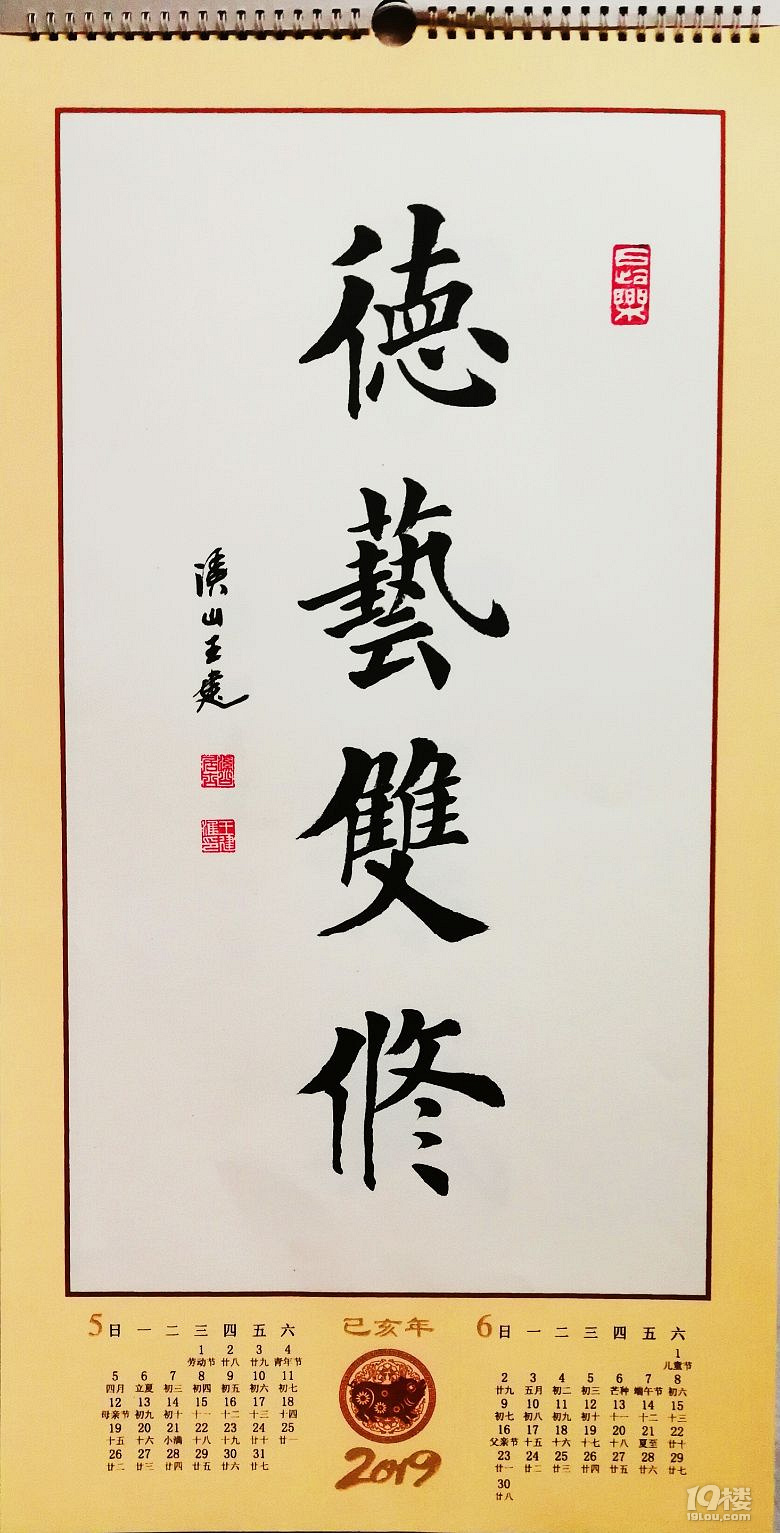 德藝雙修
王建
5 日 一 二 三 四 五 六
1 2 3 4
劳动节 廿八 廿九 青年节
5 6 7 8 9 10 11
四月 立夏 初三 初四 初五 初六 初七
12 13 14 15 16 17 18
母亲节 初九 初十 十一 十二 十三 十四
19 20 21 22 23 24 25
十五 十六 小满 十八 十九 廿十 廿一
26 27 28 29 30 31
廿二 廿三 廿四 廿五 廿六 廿七
己亥年
2019
6 日 一 二 三 四 五 六
1
儿童节
2 3 4 5 6 7 8
廿九 五月 初二 初三 芒种 端午节 初六
9 10 11 12 13 14 15
初七 初八 初九 初十 十一 十二 十三
16 17 18 19 20 21 22
父亲节 十五 十六 十七 十八 夏至 廿十
23 24 25 26 27 28 29
廿一 廿二 廿三 廿四 廿五 廿六 廿七
30
廿八
19楼
19lou.com